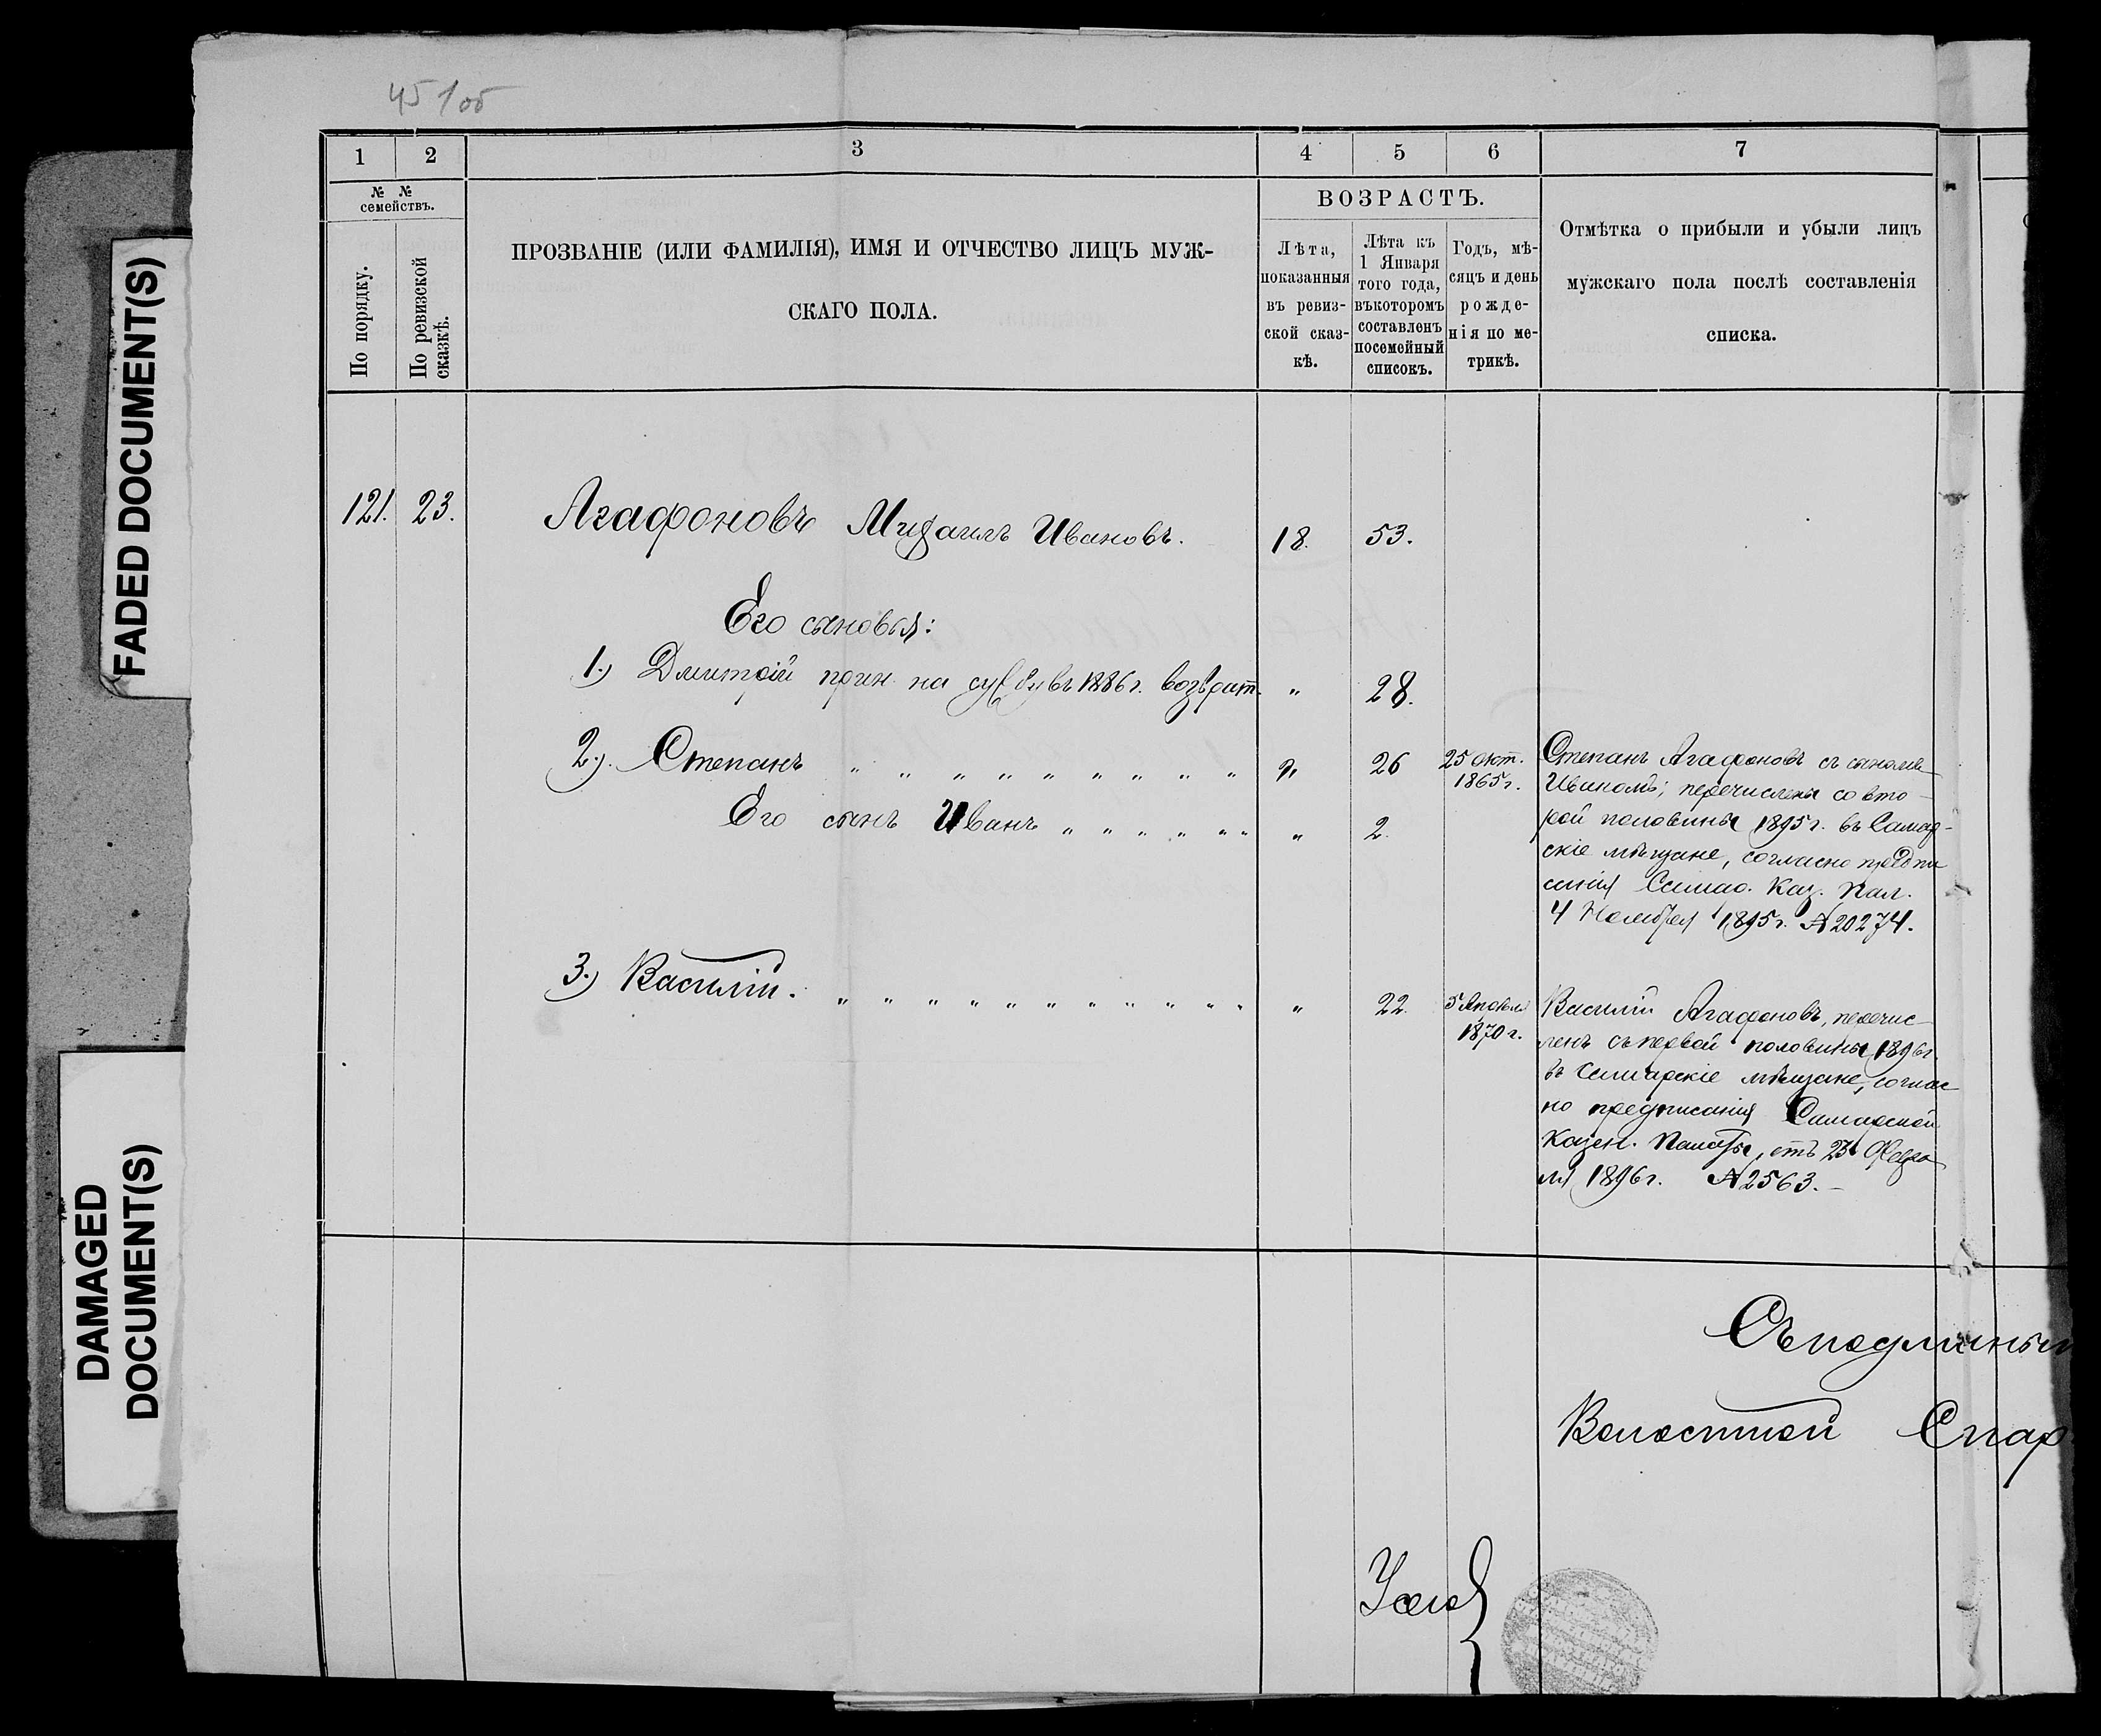 45 1об
1
2
3
4
5
6
7
№ №
семействъ.
По порядку.
По ревизской
сказкѣ.
ПРОЗВАНІЕ (ИЛИ ФАМИЛІЯ), ИМЯ И ОТЧЕСТВО ЛИЦЪ МУЖ-
СКАГО ПОЛА.
ВОЗРАСТЪ.
Лѣта,
показанныя
въ ревиз-
ской сказ-
кѣ.
Лѣта къ
1 Января
того года,
въ которомъ
составленъ
посемейный
списокъ.
Годъ, мѣ-
сяцъ и день
рожде-
нія по ме-
трикѣ.
Отмѣтка о прибыли и убыли лицъ
мужскаго пола послѣ составленія
списка.
121. 23. Агафоновъ Михаилъ Ивановъ. 18. 53.
Его сыновья:
1.) Дмитрій прин. на службу въ 1886 г. возврат. " 28.
2.) Степанъ " " " " " " " " " " 26 25 Окт.
1865 г.
Его сынъ Иванъ " " " " " " " 2.
Степанъ Агафоновъ съ сыномъ
Иваномъ; перечислены со вто-
рой половины 1895 г. въ Самар-
скіе мѣщане, согласно предпи
санія Самар. Каз. Пал.
4 Ноября 1895 г. № 20274.
3.) Василій. " " " " " " " " " " " " 22. 5 Апрѣля
1870 г.
Василій Агафоновъ, перечис-
ленъ съ первой половины 1896 г.
въ Самарскіе мѣщане, соглас
но предписанія Самарской
Казен. Палаты, отъ 23 Февра
ля 1896 г. № 2563.-
Съ подлинны
Волостной Стар
Усол
FADED DOCUMENT(S)
DAMAGED
DOCUMENT(S)